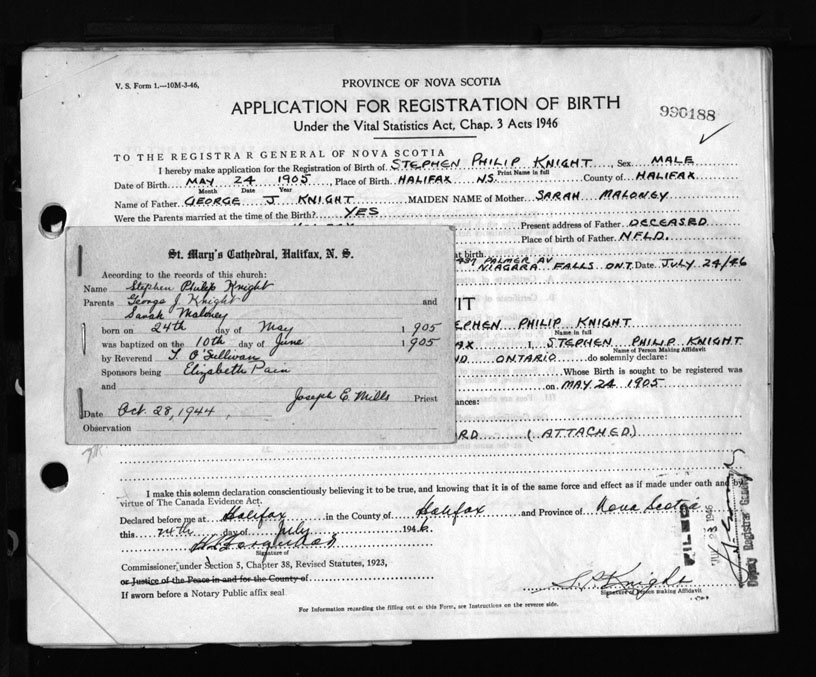 V. S. Form 1.—10M-3-46,
PROVINCE OF NOVA SCOTIA
APPLICATION FOR REGISTRATION OF BIRTH
990188
Under the Vital Statistics Act, Chap. 3 Acts 1946
TO THE REGISTRAR GENERAL OF NOVA SCOTIA
I hereby make application for the Registration of Birth of STEPHEN PHILIP KNIGHT, Sex MALE
Print Name in full
Date of Birth MAY 24 1905, Place of Birth HALIFAX N.S. County of HALIFAX
Month Date Year
Name of Father GEORGE J KNIGHT MAIDEN NAME of Mother SARAH MALONEY
Were the Parents married at the time of the Birth? YES
Present address of Father DECEASED
Place of birth of Father NFLD.
at birth
PALMER AV
NIAGARA FALLS ONT. Date JULY 24/46
St. Mary's Cathedral, Halifax, N. S.
According to the records of this church:
Name Stephen Philip Knight
Parents George J. Knight and
Sarah Maloney
born on 24th day of May 1905
was baptized on the 10th day of June 1905
by Reverend T. O'Sullivan
Sponsors being Elizabeth Pain
and
Joseph E. Mills Priest
Date Oct. 28, 1944,
Observation
VIT
STEPHEN PHILIP KNIGHT
Name in full
FAX I, STEPHEN PHILIP KNIGHT
Name of Person Making Affidavit
ND ONTARIO do solemnly declare:
Whose Birth is sought to be registered was
on MAY 24 1905
ances:
ORD (ATTACHED)
I make this solemn declaration conscientiously believing it to be true, and knowing that it is of the same force and effect as if made under oath and by
virtue of The Canada Evidence Act.
Declared before me at Halifax in the County of Halifax and Province of Nova Scotia
this 24th day of July 1946.
Signature of
Commissioner, under Section 5, Chapter 38, Revised Statutes, 1923,
or Justice of the Peace in and for the County of
If sworn before a Notary Public affix seal
S. P. Knight
Signature of Person making Affidavit
For Information regarding the filling out of this Form, see Instructions on the reverse side.
FILED
1946
Deputy Registrar General